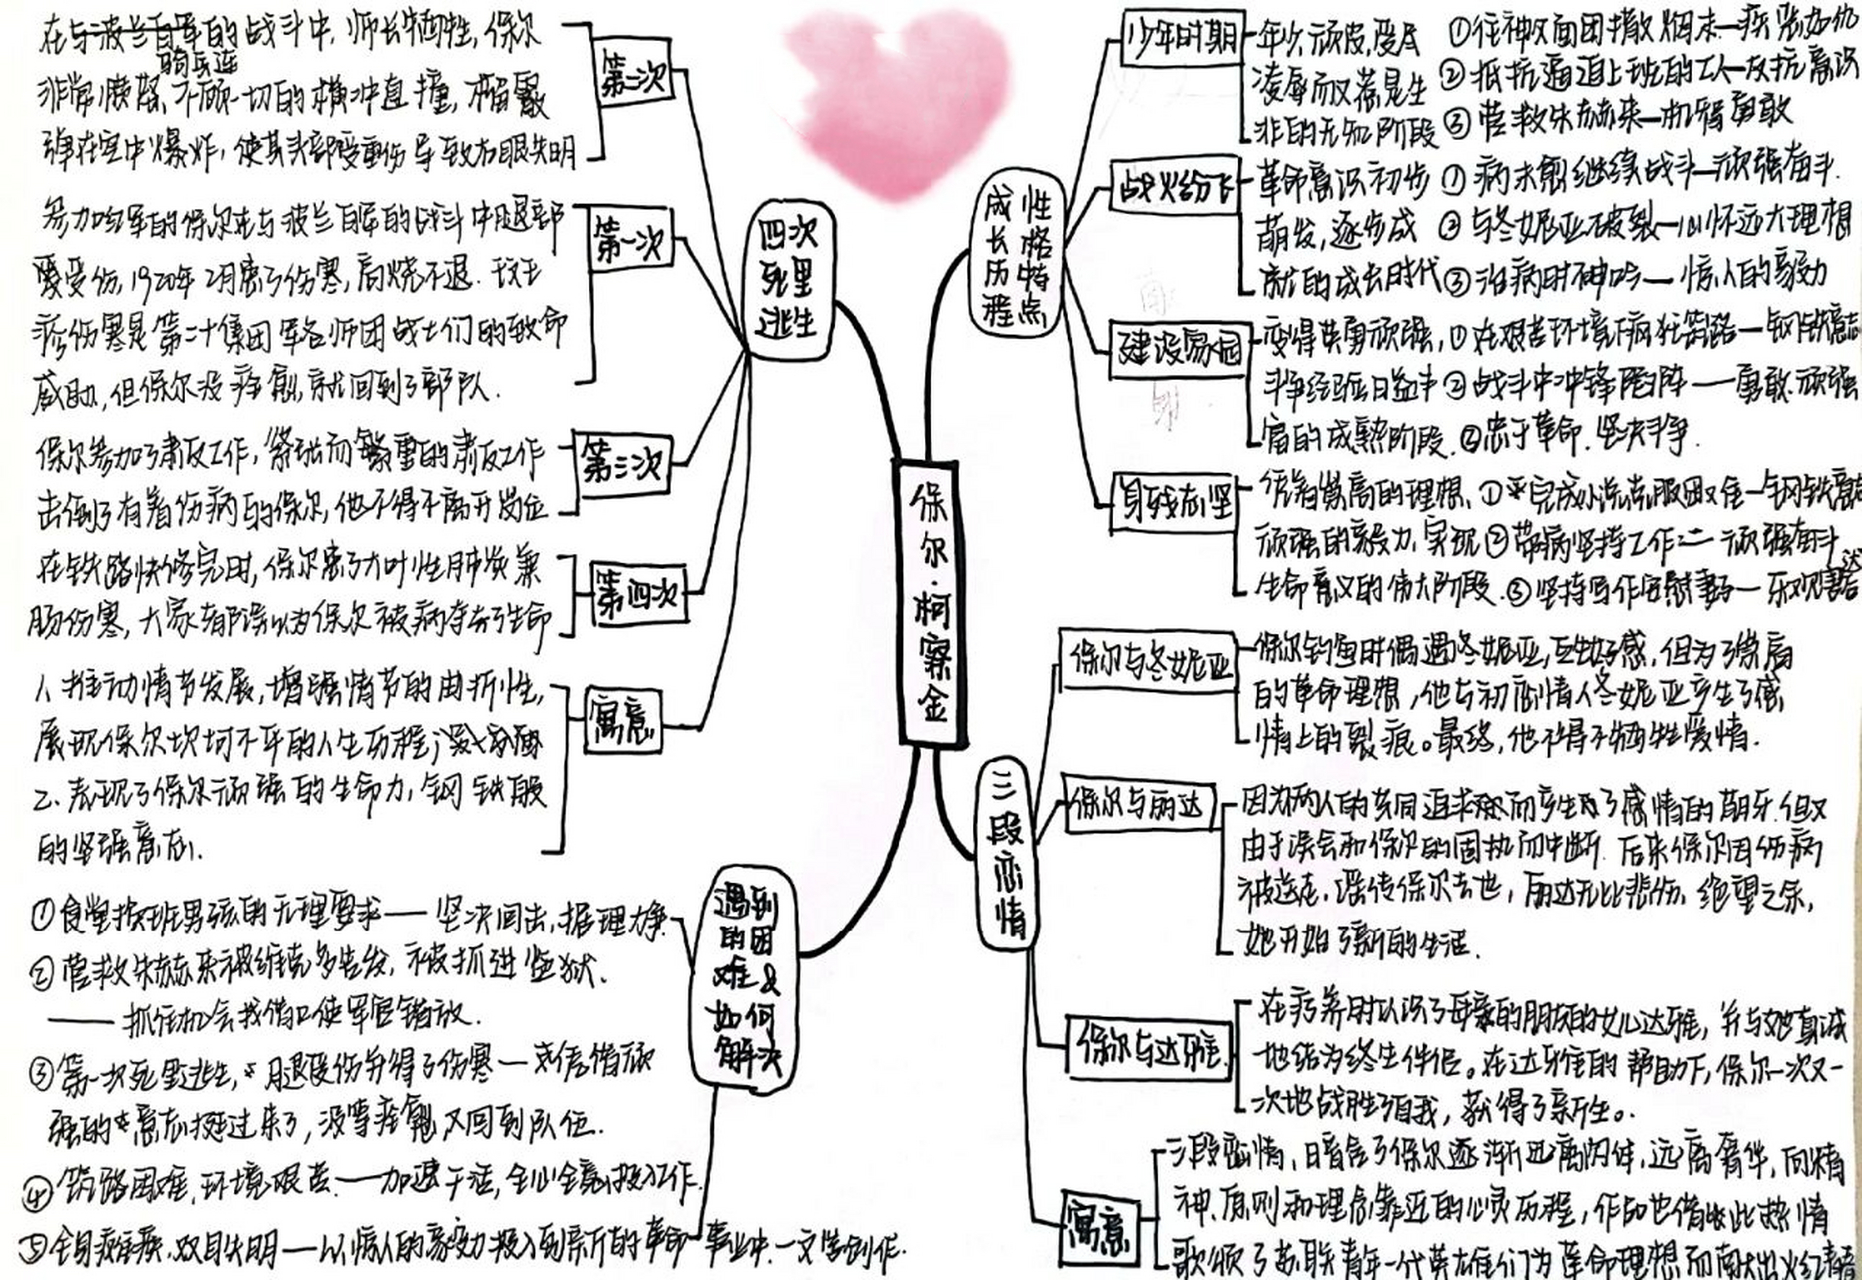 保尔·柯察金
四次死里逃生
第二次
在与波兰白军的战斗中,师长牺牲,保尔
骑兵连
非常愤怒,不顾一切的横冲直撞,榴霰
弹在空中爆炸,使其头部受重伤导致右眼失明
第一次
参加红军的保尔在与波兰白军的战斗中腿部
受伤,1920年2月患了伤寒,高烧不退.
疹伤寒是第二十集团军各师团战士们的致命
威胁,但保尔没痊愈,就回到了部队.
第三次
保尔参加了肃反工作,紧张而繁重的肃反工作
击倒了有着伤病的保尔,他不得不离开岗位
第四次
在铁路快修完时,保尔患了大叶性肺炎兼
肠伤寒,大家都误以为保尔被病夺去了生命
寓意
1、推动情节发展,增强情节的曲折性,
展现保尔坎坷不平的人生历程;
2、表现了保尔顽强的生命力,钢铁般
的坚强意志.
遇到的困难&如何解决
①食堂换班男孩的无理要求——坚决回击,据理力争.
②营救朱赫来被维克多告发,被抓进监狱.
——抓住机会找借口使军官错放.
③第一次死里逃生,腿受伤并得了伤寒—
强的意志挺过来了,没等痊愈又回到队伍.
④筑路困难,环境艰苦.——加速干活,全心全意投入工作.
⑤全身瘫痪.双目失明——以惊人的毅力投入到新的革命事业中.—文学创作.
成长历程 性格特点
少年时期
年少顽皮,受尽
凌辱而又惹是生
非的无知阶段
①往神父面团撒烟末—疾恶如仇
②抵抗逼迫上班的工人—反抗意识
③营救朱赫来—机智勇敢
战火纷飞
革命意识初步
萌发,逐步成
就的成长时代
①病未愈继续战斗—顽强奋斗.
②与冬妮亚破裂—心怀远大理想
③治病时不呻吟—惊人的毅力
建设家园
变得英勇顽强,
斗争经验日益丰
富的成熟阶段.
①在艰苦环境下疯狂筑路—钢铁意志
②战斗中冲锋陷阵——勇敢.顽强
③忠于革命.坚决斗争.
身残志坚
凭着崇高的理想、
顽强的毅力,实现
生命意义的伟大阶段.
①完成小说克服困难—钢铁意志
②带病坚持工作—顽强奋斗
③坚持写作安慰妻子—乐观
三段恋情
保尔与冬妮亚
保尔钓鱼时偶遇冬妮亚,互生好感,但为了崇高
的革命理想,他与初恋情人冬妮亚产生了感
情上的裂痕。最终,他不得不牺牲爱情.
保尔与丽达
因为两人的共同追求而产生了感情的萌芽.但又
由于误会和保尔的固执而中断.后来保尔因伤病
被送走,谣传保尔去世,丽达无比悲伤,绝望之余,
她开始了新的生活.
保尔与达雅
在疗养时认识了母亲的朋友的女儿达雅,并与她真诚
地结为终生伴侣。在达雅的帮助下,保尔一次又一
次地战胜了自我,获得了新生。
寓意
三段恋情,暗含了保尔逐渐远离肉体,远离奢华,向精
神、原则和理念靠近的心灵历程,作即也借此热情
歌颂了苏联青年一代英雄们为革命理想而献出火红青春